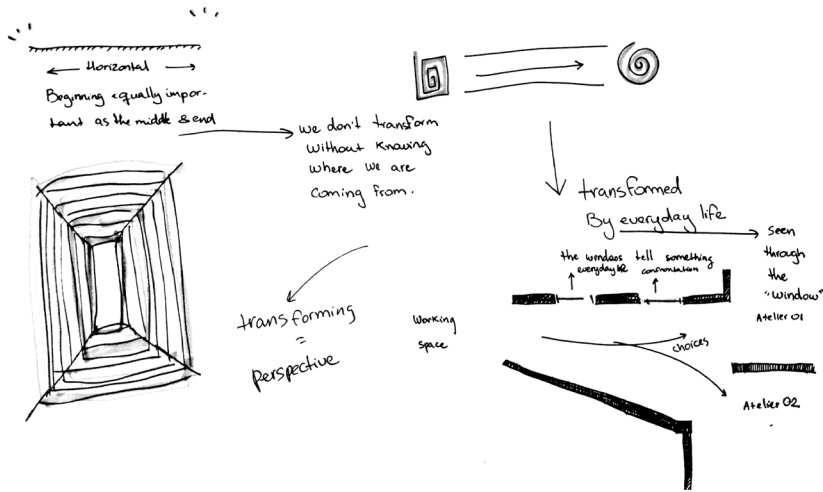 Horizontal
Beginning equally impor-
tant as the middle & end
we don't transform
without knowing
where we are
coming from.
transforming
=
perspective
transformed
By everyday life
seen
through
the
"window"
the windows tell something
everyday life
confrontation
Working
space
choices
Atelier 01
Atelier 02